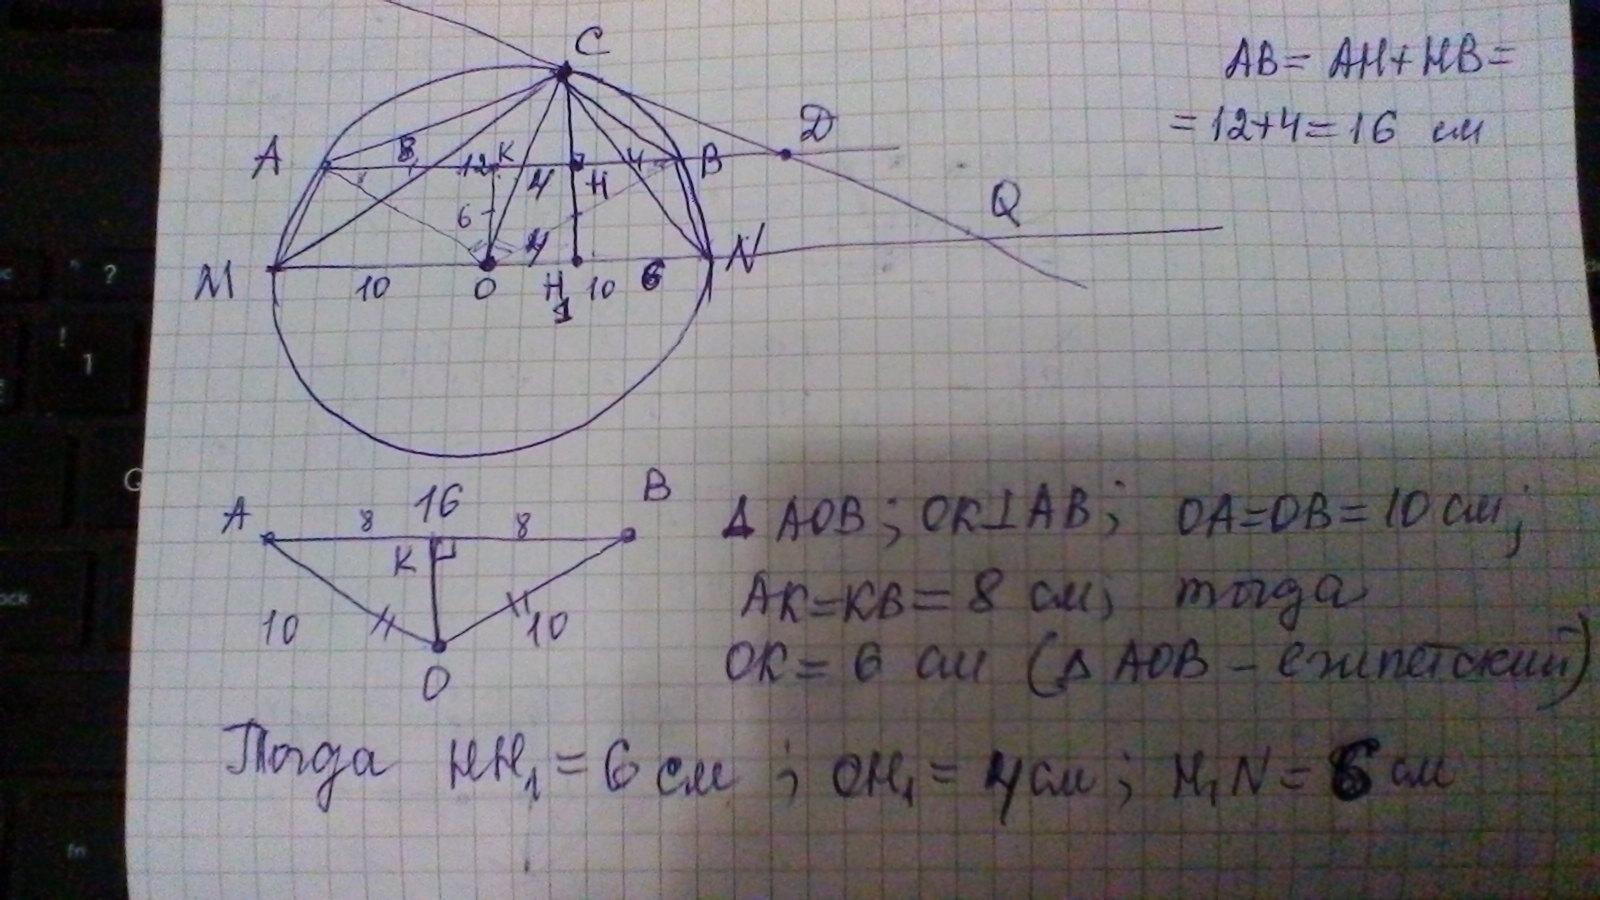 C
AB = AH + HB =
= 12 + 4 = 16 см
D
A 8 12 K 4 H 4 B
Q
6 4
M 10 O H₁ 10 6 N
A 8 16 8 B
K
10 10
O
Δ AOB ; OK⊥AB ; OA=OB=10 см ;
AK=KB= 8 см; тогда
OK= 6 см (Δ AOB – египетский)
Тогда HH₁ = 6 см ; OH₁ = 4 см ; H₁N = 6 см
? 
! 1
Q
fn